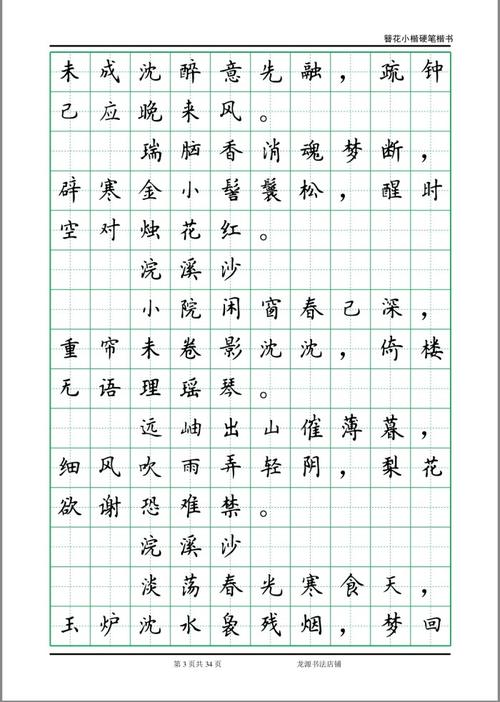 簪花小楷硬笔楷书
未成沈醉意先融，疏钟
己应晚来风。
瑞脑香消魂梦断，
辟寒金小髻鬟松，醒时
空对烛花红。
浣溪沙
小院闲窗春己深，
重帘未卷影沈沈，倚楼
无语理瑶琴。
远岫出山催薄暮，
细风吹雨弄轻阴，梨花
欲谢恐难禁。
浣溪沙
淡荡春光寒食天，
玉炉沈水袅残烟，梦回
第 3 页共 34 页 龙源书法店铺